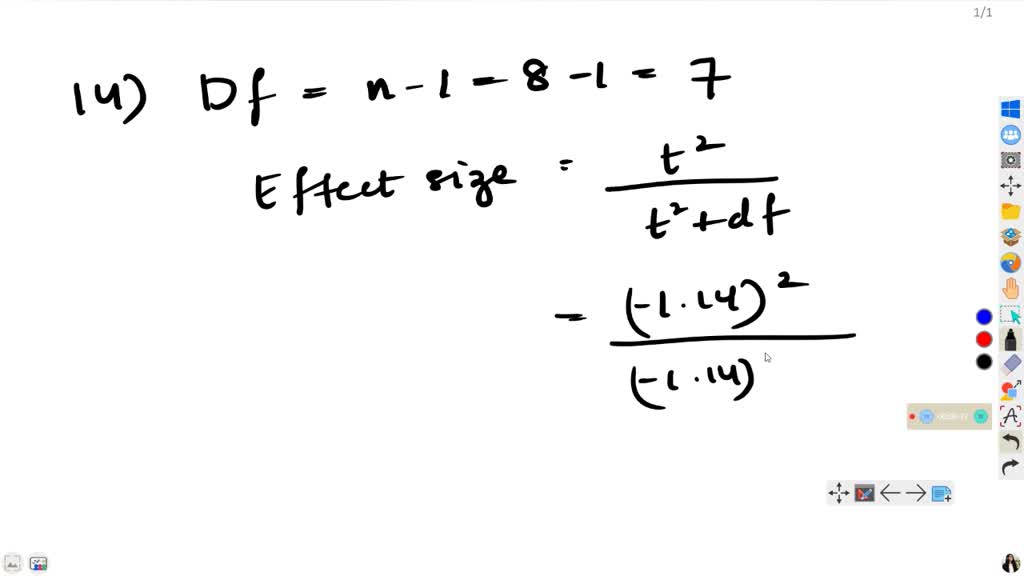 1/1
14) Df = n - 1 = 8 - 1 = 7
Effect size = t² / t² + df
= (-1.14)² / (-1.14)